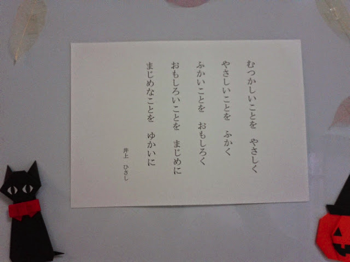 むつかしいことを　やさしく
やさしいことを　ふかく
ふかいことを　おもしろく
おもしろいことを　まじめに
まじめなことを　ゆかいに
井上　ひさし